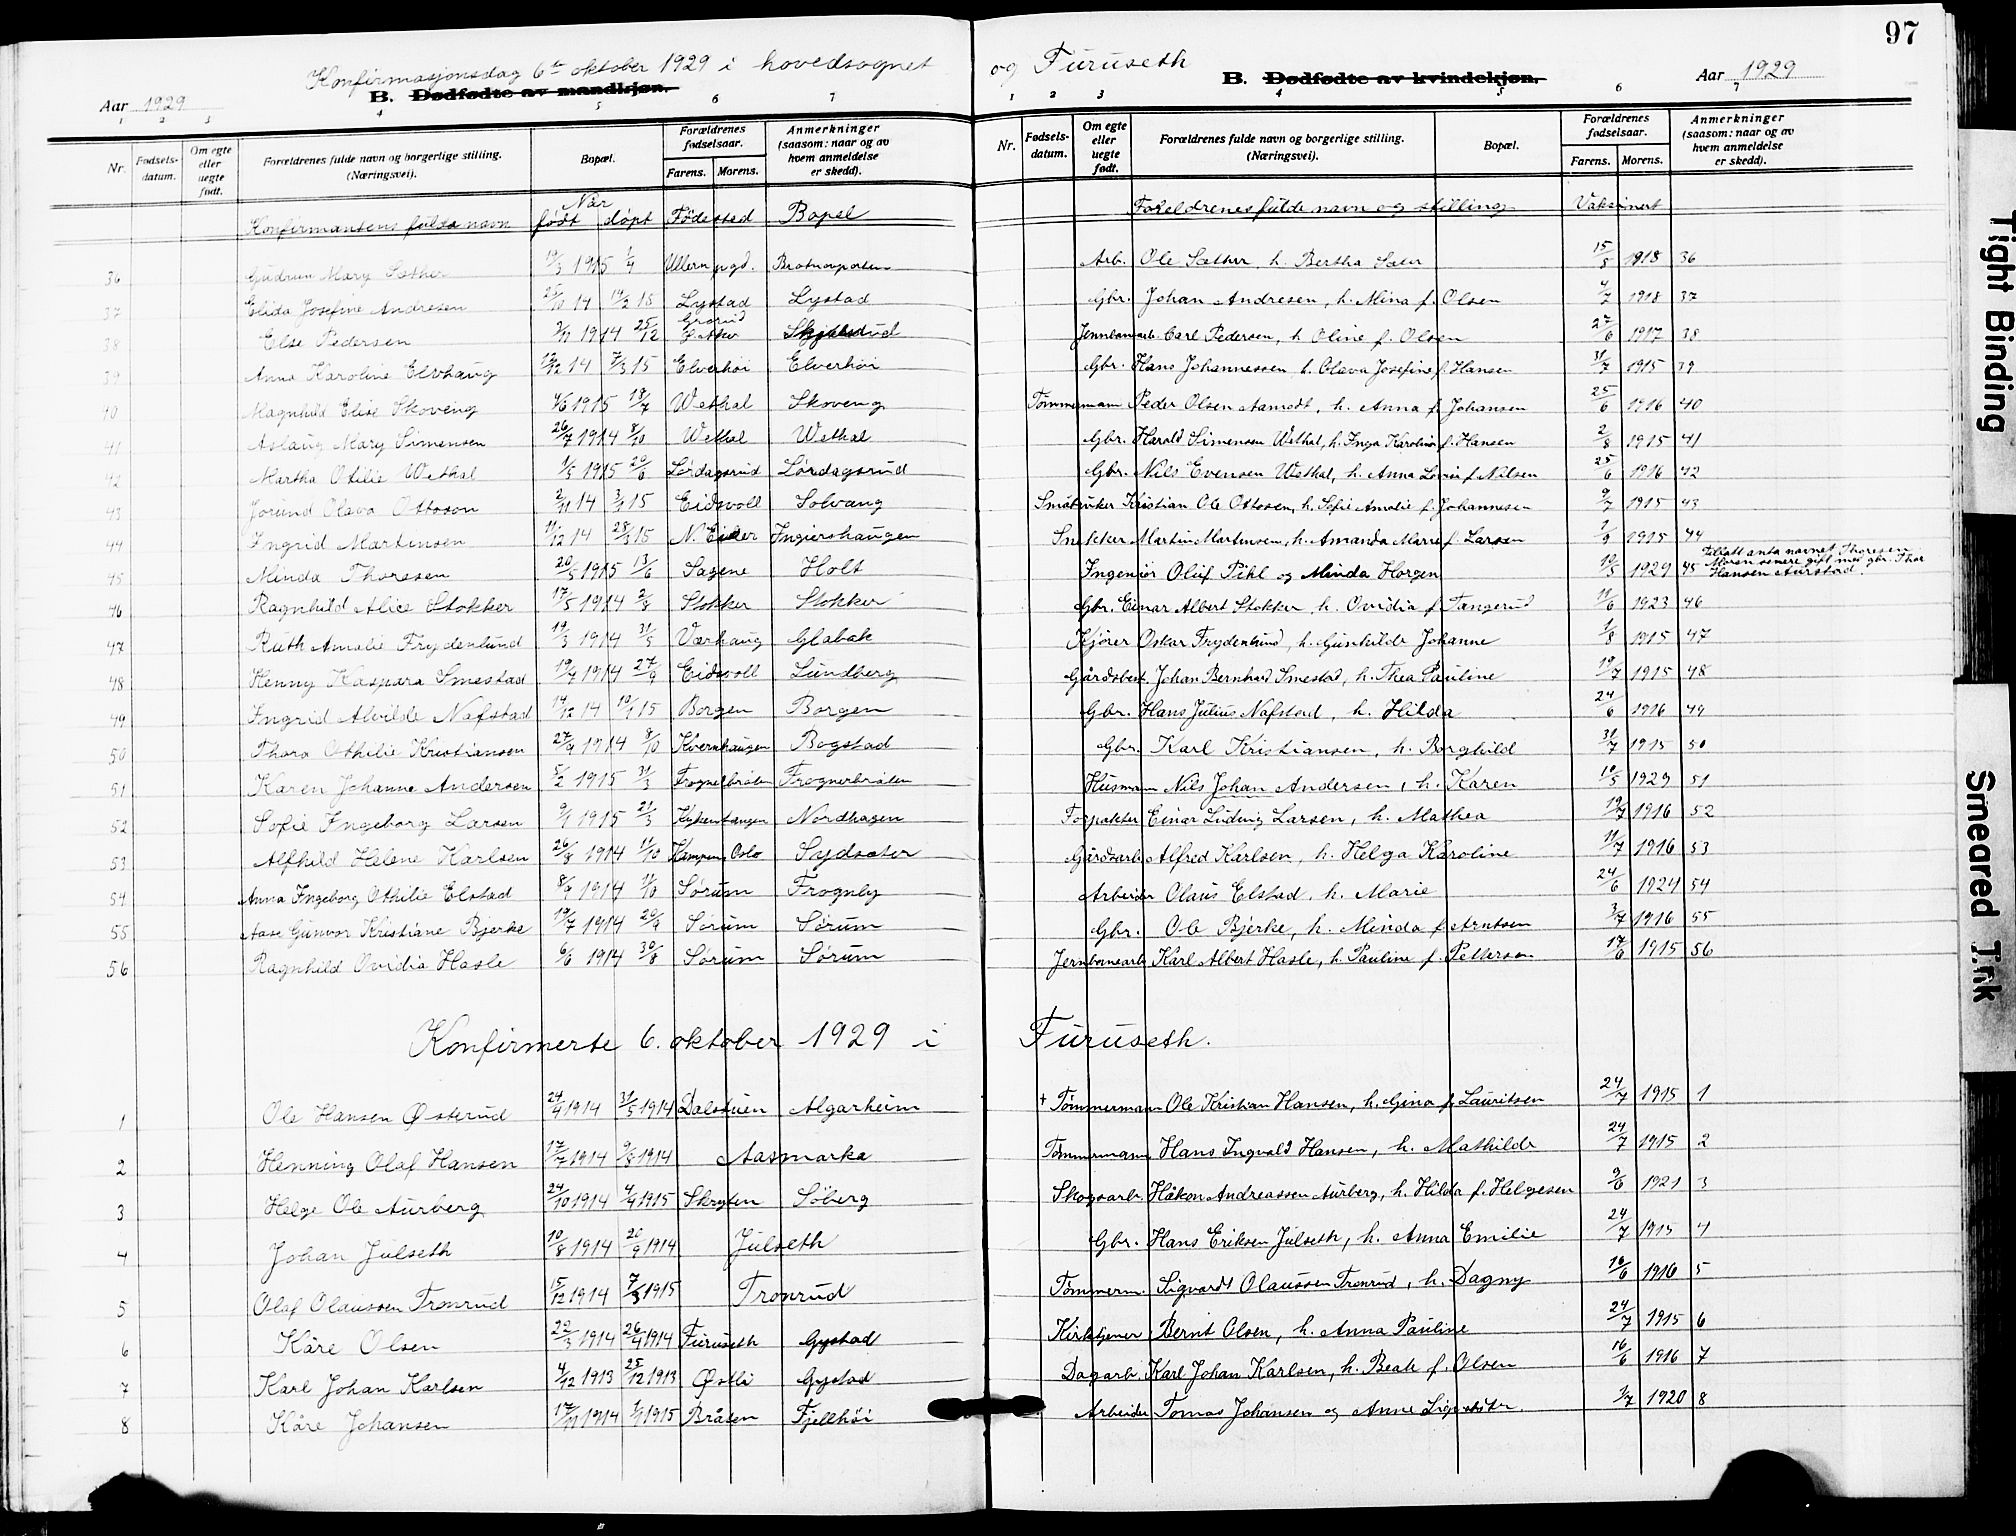 97
Konfirmasjonsdag 6te oktober 1929 i hovedsognet og Furuseth
Aar 1929 B. Dødfødte av mandkjøn.
B. Dødfødte av kvindekjøn. Aar 1929
1 2 3 4 5 6 7
1 2 3 4 5 6 7
Nr. Fødsels-datum. Om egte eller uegte født. Forældrenes fulde navn og borgerlige stilling. (Næringsvei). Bopæl. Forældrenes fødselsaar. Farens. Morens. Anmerkninger (saasom: naar og av hvem anmeldelse er skedd).
Nr. Fødsels-datum. Om egte eller uegte født. Forældrenes fulde navn og borgerlige stilling. (Næringsvei). Bopæl. Forældrenes fødselsaar. Farens. Morens. Anmerkninger (saasom: naar og av hvem anmeldelse er skedd).
Konfirmantens fulde navn Når født døpt Fødested Bopel Foreldrenes fulde navn og stilling Vaksinert
36 Gudrun Mary Sæther 19/3 1915 Ullern Arb. Ole Sæther, h. Bertha 15/5 1918 36
37 Elida Josefine Andresen 25/10 14 14/2 15 Lystad Lystad Gbr. Johan Andresen, h. Mina f. Olsen 4/7 1918 37
38 Else Pedersen 3/11 1914 25/12 Grorud Ø. Aker Jernbanearb. Carl Pedersen, h. Oline f. Olsen 27/6 1917 38
39 Anna Karoline Elvhaug 12/12 14 7/3 15 Elverhøi Elverhøi Gbr. Hans Johannessen h. Olava Josefine f. Hansen 31/7 1915 39
40 Magnhild Elise Skoveng 4/6 1915 18/7 Wethal Skoveng Tømmermann Peder Olsen Aamodt, h. Anna f. Johansen 25/6 1916 40
41 Aslaug Mary Simensen 26/7 1914 8/10 Wethal Wethal Gbr. Harald Simensen Wethal, h. Inga Karoline f. Hansen 2/8 1915 41
42 Martha Otilie Wethal 1/5 1915 20/6 Lørdagsrud Lørdagsrud Gbr. Nils Evensen Wethal, h. Anna Lovise f. Nilsen 25/6 1916 42
43 Jorund Olava Ottosen 2/11 14 3/1 15 Eidsvoll Solvang Småbruker Kristian Ole Ottosen, h. Sofie Amalie f. Johannesen 9/7 1915 43
44 Ingrid Martinsen 11/12 14 28/3 15 N. Eider Ingiershaugen Snekker Martin Martinsen, h. Amanda Marie f. Larsen 1915 44
45 Minda Thoresen 20/5 1915 13/6 Sagene Holt Ingeniør Oluf Pihl og Minda Horgen 10/5 1929 45 Tillatt anta navnet Thoresen Moren senere gift med gbr. Thor Hansen Aurstad.
46 Ragnhild Alice Stokker 17/5 1914 2/8 Stokker Stokker Gbr. Einar Albert Stokker, h. Ovidia f. Tangerud 19/6 1923 46
47 Ruth Amalie Frydenlund 19/3 1914 31/5 Værhaug Glabak Kjører Oskar Frydenlund, h. Gunhilde Johanne 1/8 1915 47
48 Henny Kaspara Smestad 19/7 1914 27/9 Eidsvoll Lundberg Gårdsbest. Johan Bernhard Smestad, h. Thea Pauline 19/7 1915 48
49 Ingrid Alvilde Nafstad 14/12 14 10/1 15 Borgen Borgen Gbr. Hans Julius Nafstad, h. Hilda 24/6 1916 49
50 Thora Othilie Kristiansen 27/9 1914 8/10 Kvernhaugen Bogstad Gbr. Karl Kristiansen, h. Borghild 31/7 1915 50
51 Karen Johanne Andersen 5/2 1915 31/3 Frognerbråten Frognerbråten Husmann Nils Johan Andersen, h. Karen 10/5 1929 51
52 Sofie Ingeborg Larsen 9/1 1915 21/3 Nordhagen Forpakter Einar Ludvig Larsen, h. Mathea 19/7 1916 52
53 Alfhild Helene Karlsen 26/8 1914 11/10 Kampen, Oslo Sydsæter Gårdsarb. Alfred Karlsen, h. Helga Karoline 11/7 1916 53
54 Anna Ingeborg Othilie Elstad 8/9 1914 11/10 Sørum Frognby Arbeider Olaus Elstad, h. Marie 24/6 1924 54
55 Aase Gunvor Kristiane Bjerke 19/7 1914 20/9 Sørum Sørum Gbr. Ole Bjerke, h. Minda f. Arntsen 3/7 1916 55
56 Ragnhild Ovidia Hasle 6/6 1914 30/8 Sørum Sørum Jernbanearb. Karl Albert Hasle, h. Pauline f. Pettersen 17/6 1915 56
Konfirmerte 6. oktober 1929 i Furuseth.
1 Ole Hansen Østerud 24/4 1914 31/5 1914 Dalstuen Algarheim † Tømmermann Ole Kristian Hansen, h. Gina f. Lauritsen 24/7 1915 1
2 Henning Olaf Hansen 17/7 1914 9/8 1914 Aasmarka Tømmermann Hans Ingvald Hansen, h. Mathilde 24/7 1915 2
3 Helge Ole Aurberg 24/10 1914 4/4 1915 Skryten Søberg Skogsarb. Håkon Andreassen Aurberg, h. Hilda f. Helgesen 9/6 1921 3
4 Johan Julseth 10/8 1914 20/9 1914 Julseth Gbr. Hans Eriksen Julseth, h. Anna Emilie 24/7 1915 4
5 Olaf Olaussen Tronrud 15/12 1914 7/3 1915 Tronrud Tømmerm. Sigvardt Olaussen Tronrud, h. Dagny 16/6 1916 5
6 Kåre Olsen 22/3 1914 26/4 1914 Furuseth Gystad Kirketjener Bernt Olsen, h. Anna Pauline 24/7 1915 6
7 Karl Johan Karlsen 4/12 1913 25/12 1913 Østli Gystad Dagarb. Karl Johan Karlsen, h. Beate f. Olsen 16/6 1916 7
8 Kåre Johansen 17/11 1914 1/1 1915 Bråten Fjellhøi Arbeider Tomas Johansen og Anne 3/7 1920 8
Tight Binding
Smeared Ink